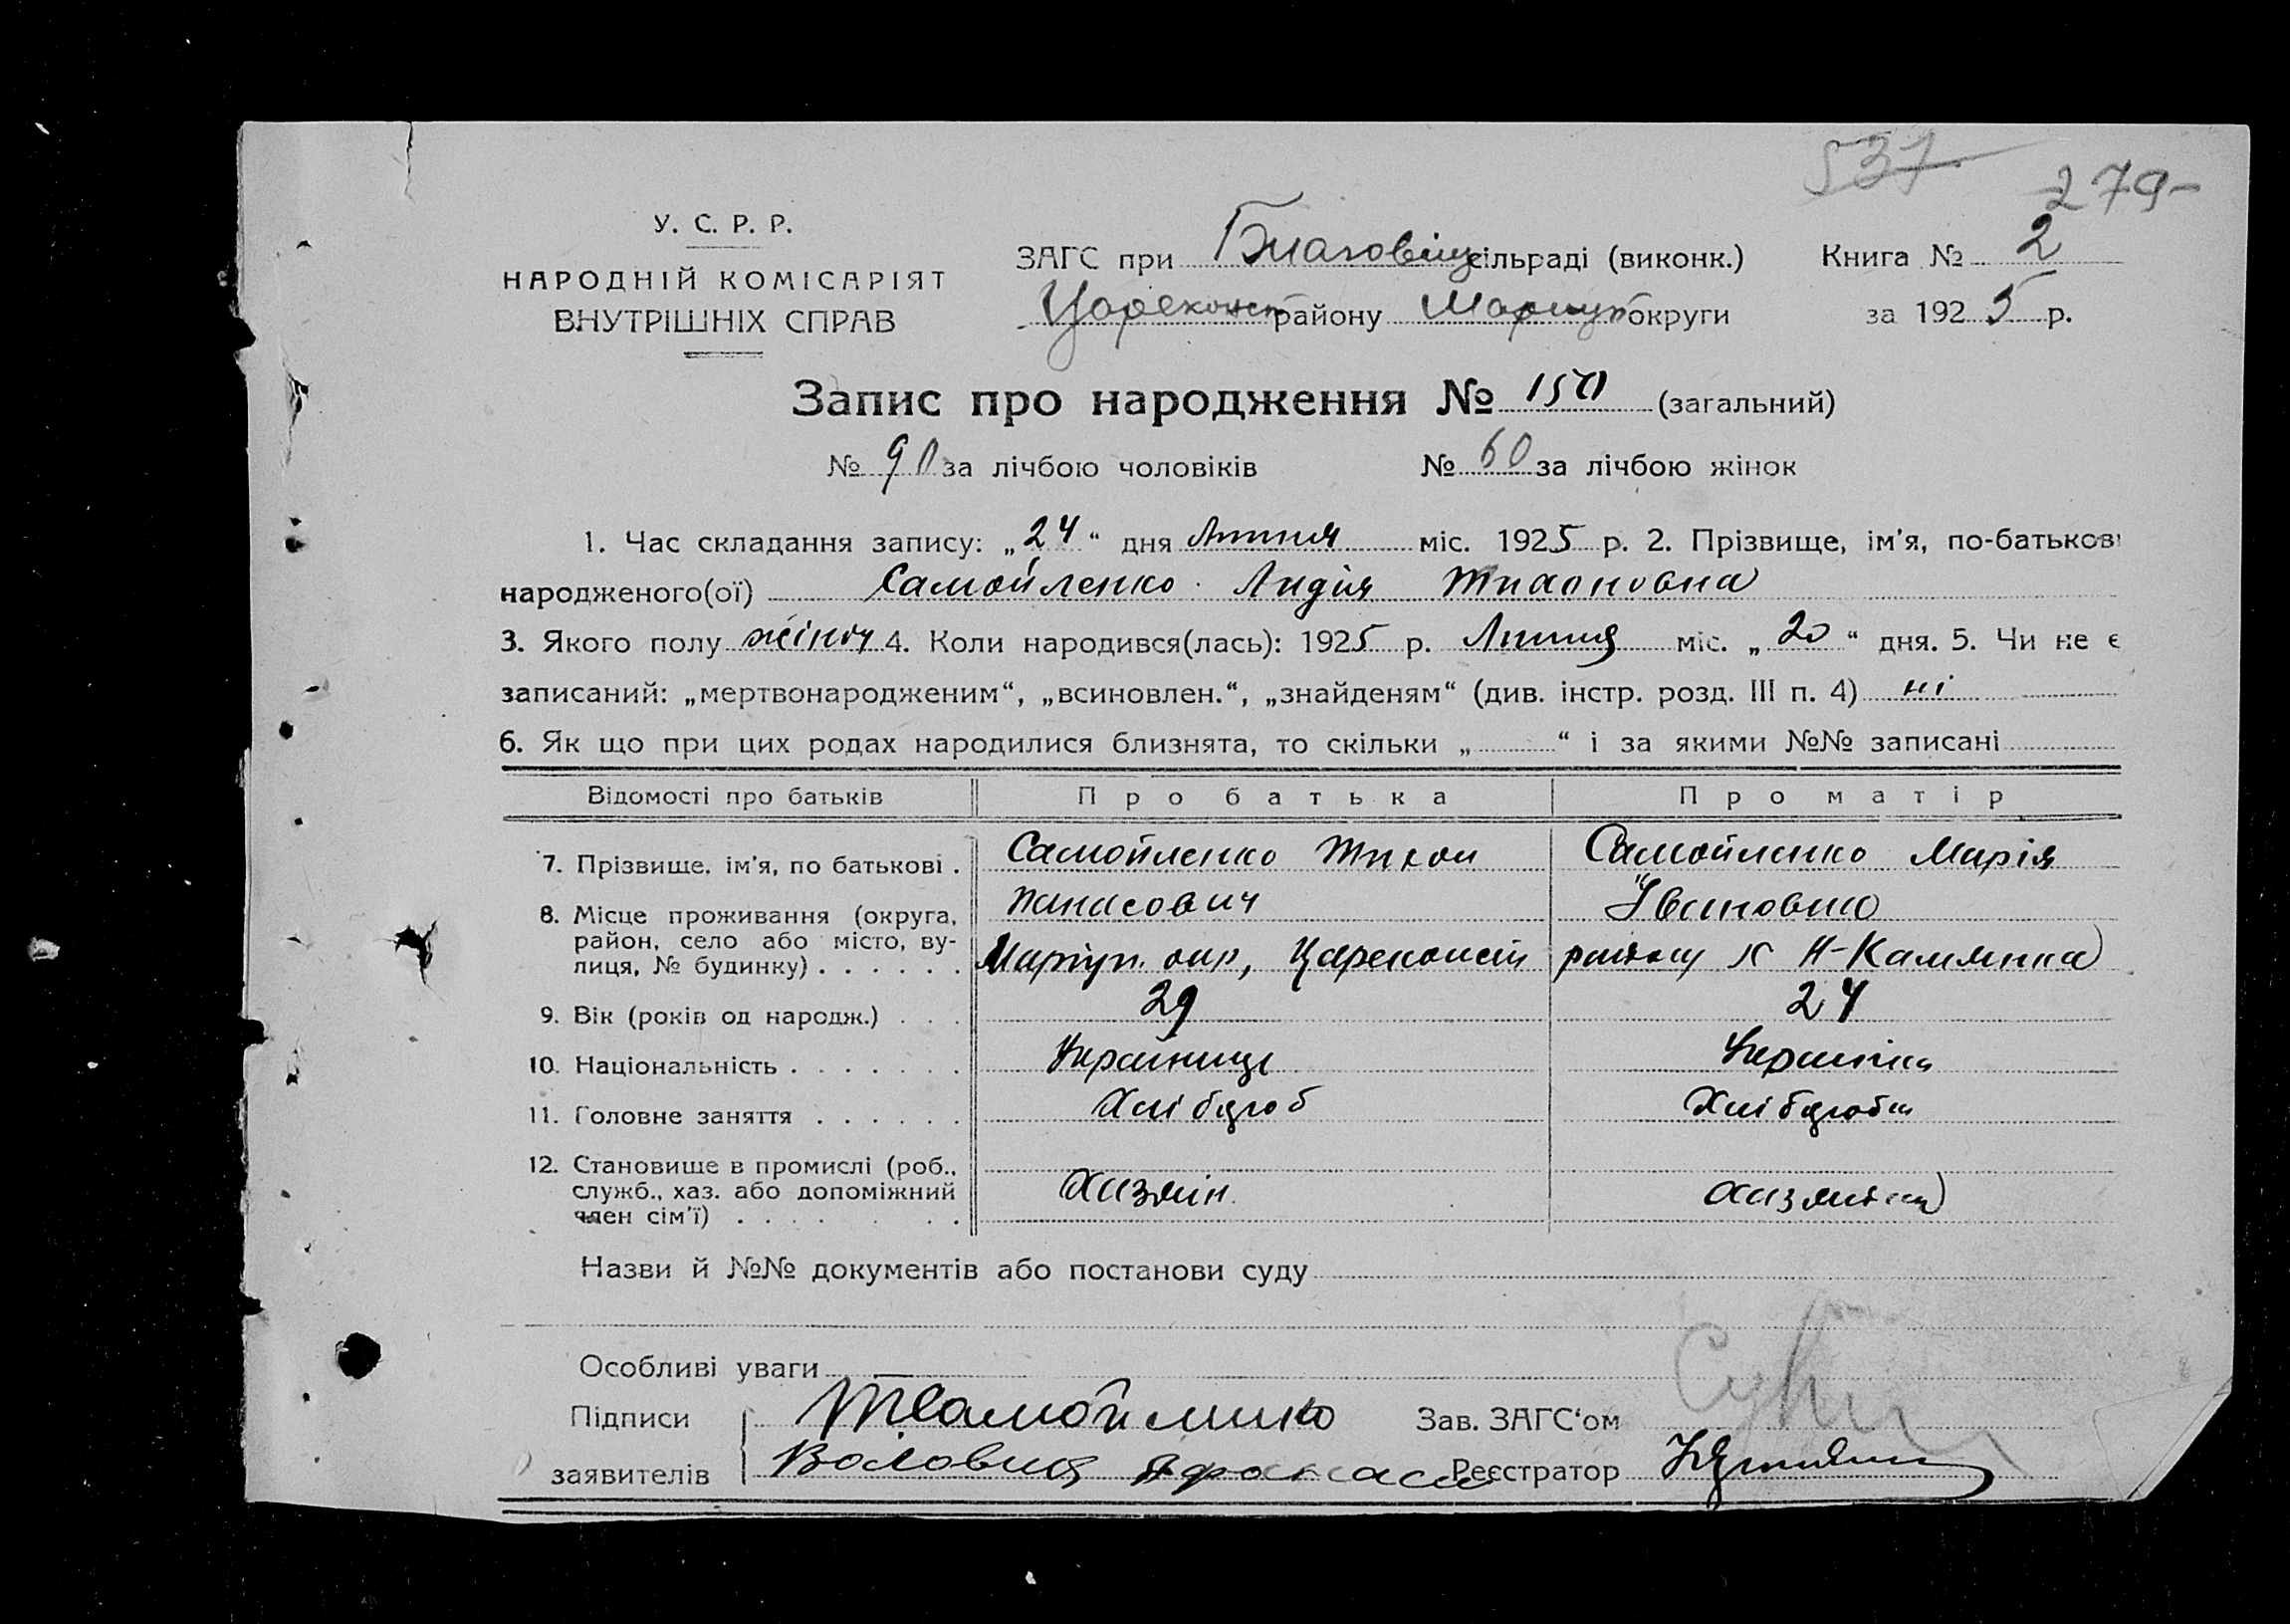 537
279-
У. С. Р. Р.
НАРОДНІЙ КОМІСАРІЯТ
ВНУТРІШНІХ СПРАВ
ЗАГС при Благовіщ сільраді (виконк.) Книга № 2
Цареконст району Маріуп округи за 1925 р.
Запис про народження № 150 (загальний)
№ 90 за лічбою чоловіків № 60 за лічбою жінок
1. Час складання запису: „24“ дня Липня міс. 1925 р. 2. Прізвище, ім'я, по-батькові
народженого(ої) Самойленко Лидія Тихоновна
3. Якого полу жіноч 4. Коли народився(лась): 1925 р. Липня міс. „20“ дня. 5. Чи не є
записаний: „мертвонародженим“, „всиновлен.“, „знайденям“ (див. інстр. розд. III п. 4) ні
6. Як що при цих родах народилися близнята, то скільки „ “ і за якими №№ записані
Відомості про батьків Про батька Про матір
7. Прізвище, ім'я, по батькові . Самойленко Тихон Самойленко Марія
Панасович Івановна
8. Місце проживання (округа, район, село або місто, вулиця, № будинку) . . . . . . Маріуп. окр, Цареконст району Н-Камянка
9. Вік (років од народж.) . . . 29 24
10. Національність . . . . . . . Українець Українка
11. Головне заняття . . . . . . Хлібороб Хлібороб
12. Становище в промислі (роб., служб., хаз. або допоміжний член сім'ї) . . . . . . . Хазяїн хазяйка
Назви й №№ документів або постанови суду
Особливі уваги
Підписи ТСамойленко Зав. ЗАГС'ом
заявителів Воловик Афанасий Реєстратор